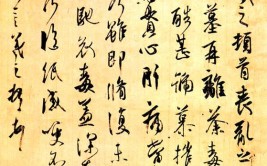 之頓首喪亂之
墓再離荼毒
酷甚號慕摧
貫心肝痛當
何雖即脩復未
馳哀毒益深
何臨紙感哽
羲之頓首